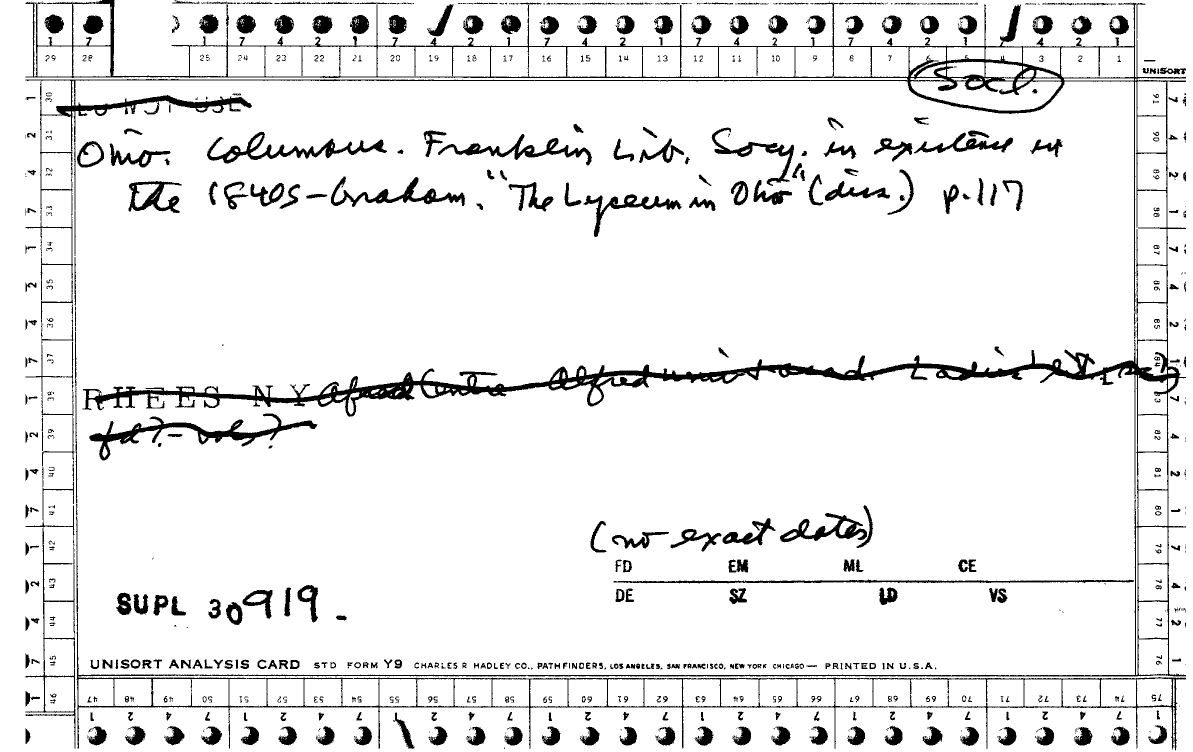 1 7 1 7 4 2 1 7 4 2 1 7 4 2 1 7 4 2 1 7 4 2 1 7 4 2 1
29 28 25 24 23 22 21 20 19 18 17 16 15 14 13 12 11 10 9 8 7 6 5 4 3 2 1
UNISORT
Socl.
DO NOT USE
Ohio. Columbus. Franklin Lib. Socy. in existence in
the 1840s-Graham. "The Lyceum in Ohio" (diss.) p.117
RHEES NY Alfred Centre Alfred Univ. Ladies' Lit.
fd?-vols?
(no exact dates)
FD EM ML CE
DE SZ LD VS
SUPL 30919.
UNISORT ANALYSIS CARD STD FORM Y9 CHARLES R HADLEY CO., PATHFINDERS, LOS ANGELES, SAN FRANCISCO, NEW YORK CHICAGO — PRINTED IN U.S.A.
47 48 49 50 51 52 53 54 55 56 57 58 59 60 61 62 63 64 65 66 67 68 69 70 71 72 73 74 75